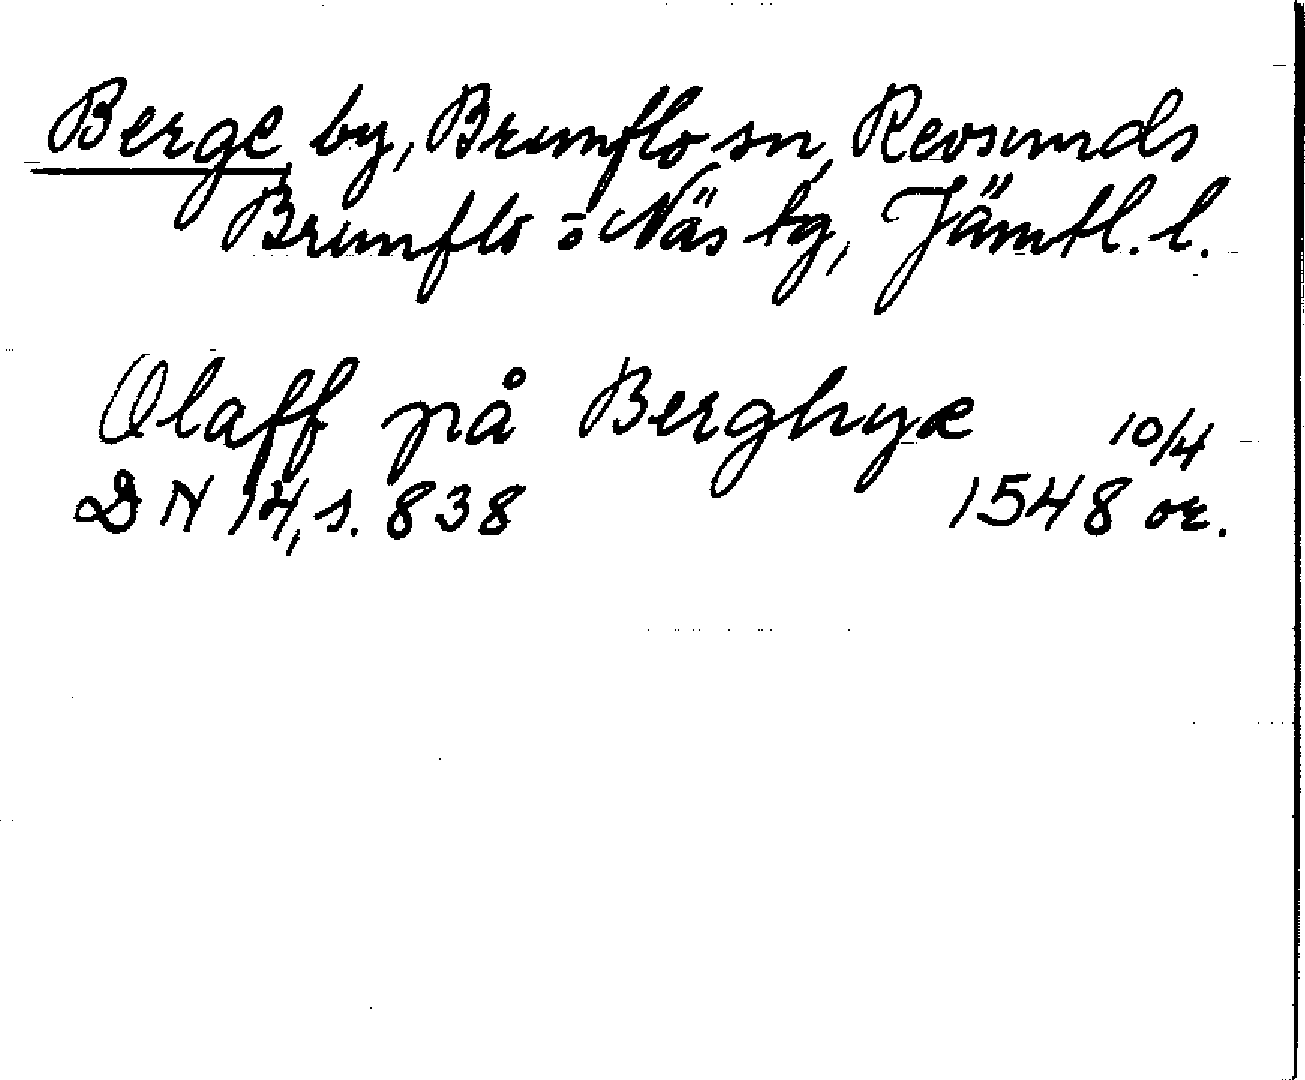 Berge, by, Brunflo sn, Revsunds
Brunflo o Näs tg, Jämtl. l.
Olaff på Berghyæ 10/4
DN 14, s. 838 1548 or.